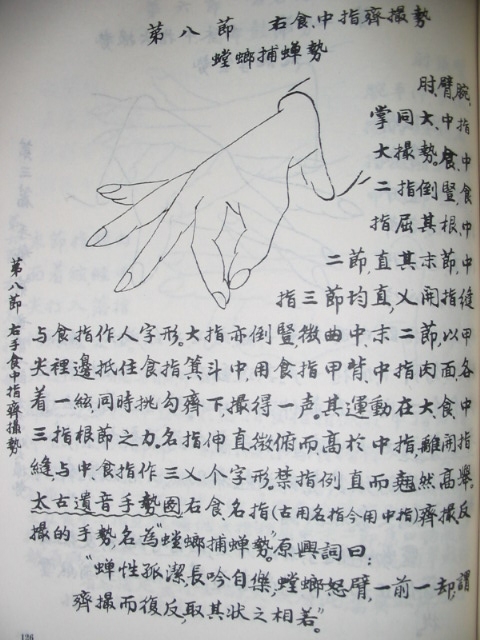 第八節 右食、中指齊撮勢
螳螂捕蟬勢
肘、臂、腕、
掌同大、中指
大撮勢。食、中
二指倒豎,食
指屈其根、中
二節,直其末節,中
指三節均直,乂開指縫
与食指作人字形。大指亦倒豎,微曲中、末二節,以甲
尖裡邊抵住食指箕斗中,用食指甲背、中指肉面,各
着一絃,同時挑勾齊下,撮得一声。其運動在大、食、中
三指根節之力。名指伸直微俯而高於中指,離開指
縫,与中、食指作三乂个字形。禁指例直而翹然高舉。
太古遺音手勢圖右食名指(古用名指今用中指)齊撮、反
撮的手勢,名為"螳螂捕蟬勢"。原興詞曰:
"蟬性孤潔長吟自傑,螳螂怒臂,一前一却,謂
齊撮而復反,取其狀之相若。"
第八節 右手食中指齊撮勢
126